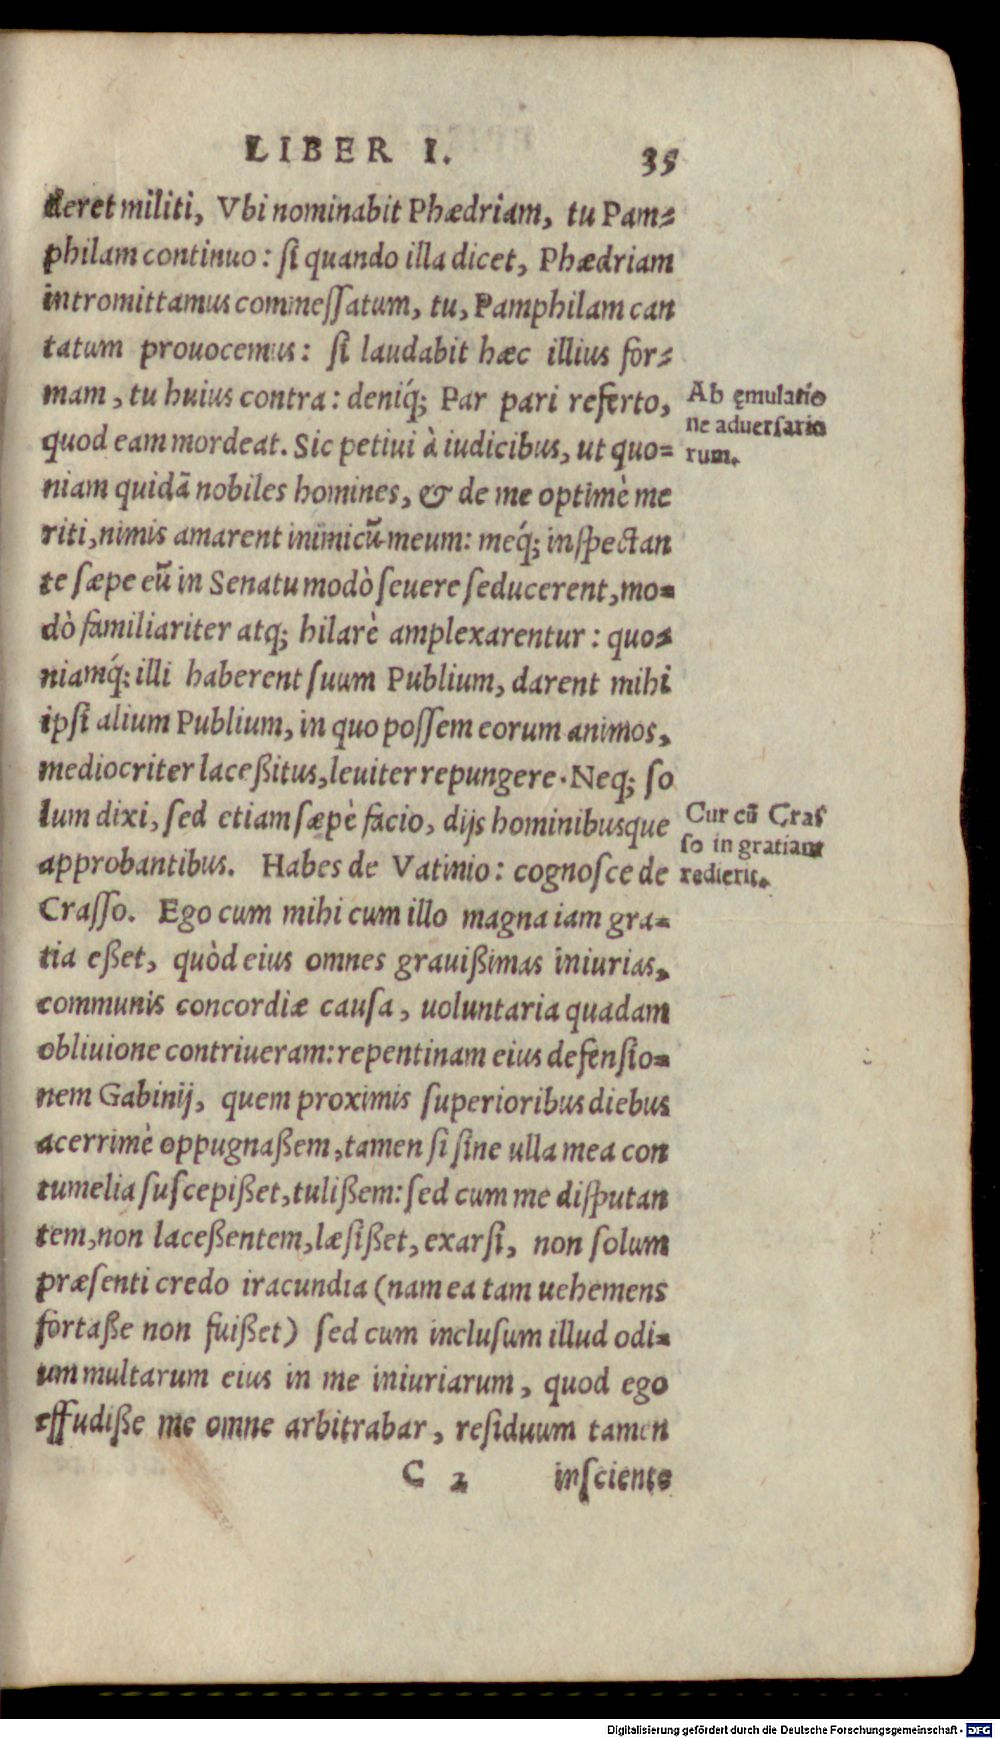 LIBER I. 35
deret militi, Vbi nominabit Phædriam, tu Pam⸗
philam continuo: ſi quando illa dicet, Phædriam
intromittamus commeſſatum, tu, Pamphilam can
tatum prouocemus: ſi laudabit hæc illius for⸗
mam, tu huius contra: deniq́; Par pari referto,
quod eam mordeat. Sic petiui à iudicibus, ut quo⸗
niam quidã nobiles homines, & de me optimè me
riti, nimis amarent inimicũ meum: meq́; inſpectan
te ſæpe eũ in Senatu modò ſeuere ſeducerent, mo⸗
dò familiariter atq; hilarè amplexarentur: quo⸗
niamq́; illi haberent ſuum Publium, darent mihi
ipſi alium Publium, in quo poſſem eorum animos,
mediocriter laceßitus, leuiter repungere. Neq; ſo
lum dixi, ſed etiam ſæpè facio, dijs hominibusque
approbantibus. Habes de Vatinio: cognoſce de
Craſſo. Ego cum mihi cum illo magna iam gra⸗
tia eßet, quòd eius omnes grauißimas iniurias,
communis concordiæ cauſa, uoluntaria quadam
obliuione contriueram: repentinam eius defenſio⸗
nem Gabinij, quem proximis ſuperioribus diebus
acerrimè oppugnaßem, tamen ſi ſine ulla mea con
tumelia ſuſcepißet, tulißem: ſed cum me diſputan
tem, non laceßentem, læſißet, exarſi, non ſolum
præſenti credo iracundia (nam ea tam uehemens
fortaße non fuißet) ſed cum incluſum illud odi⸗
um multarum eius in me iniuriarum, quod ego
effudiße me omne arbitrabar, reſiduum tamen
C 2 inſciente
Ab ęmulatio
ne aduerſario
rum.
Cur cũ Craſ
ſo in gratiam
redierit.
Digitalisierung gefördert durch die Deutsche Forschungsgemeinschaft - DFG